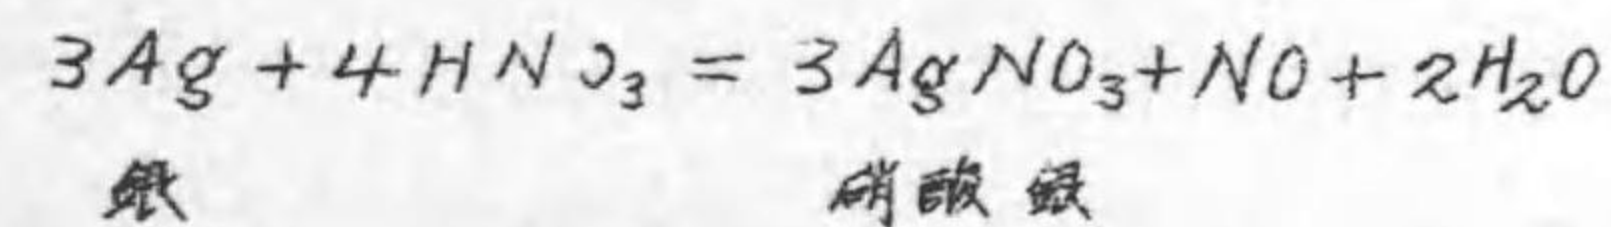 3Ag + 4HNO₃ = 3AgNO₃ + NO + 2H₂O
銀 硝酸銀